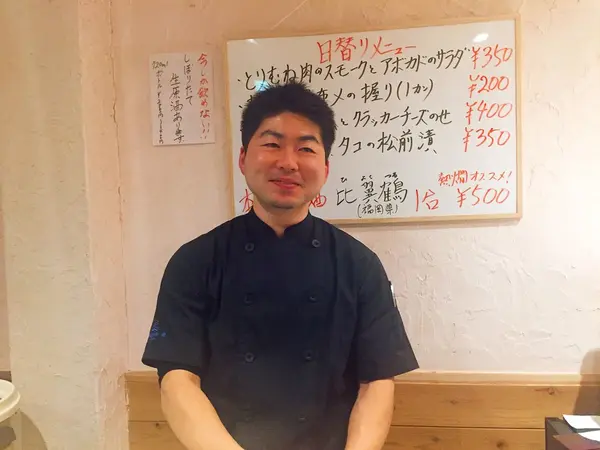 今しか飲めない!!
しぼりたて
生原酒あり〼。
日替りメニュー
・とりむね肉のスモークとアボカドのサラダ ¥350
メの握り(1カン) ¥200
とクラッカーチーズのせ ¥400
タコの松前漬 ¥350
ひ よく つる 熱燗オススメ!
比翼鶴 1合 ¥500
(福岡県)